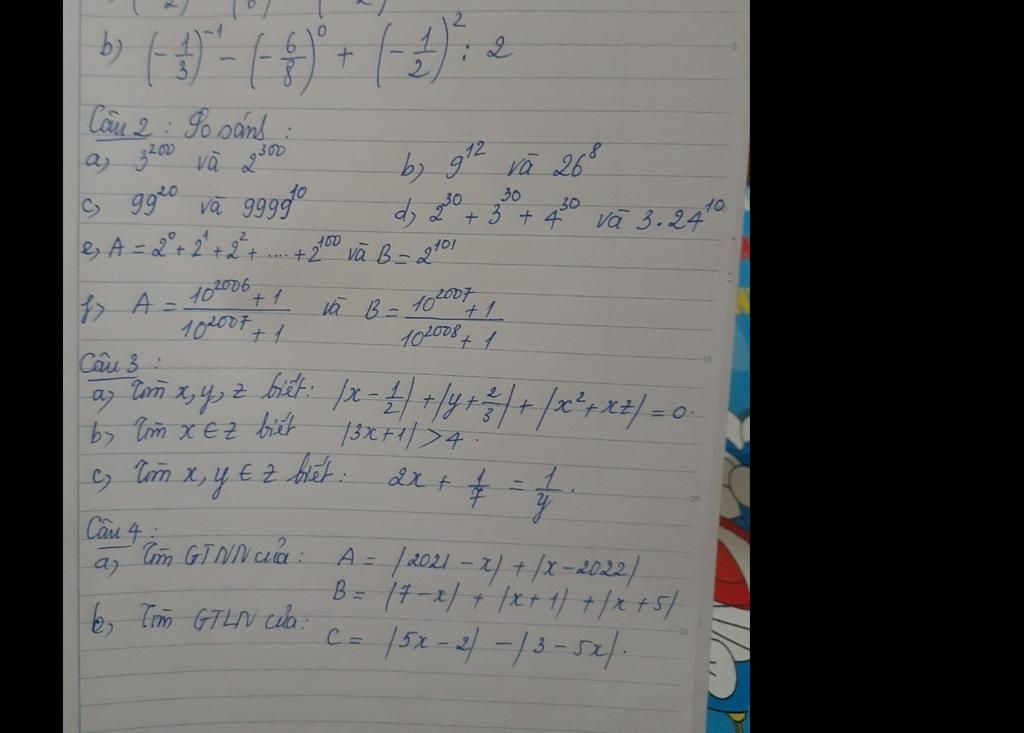 b) (-1/3)^-1 - (-6/8)^0 + (-1/2)^2 : 2
Câu 2 : So sánh :
a) 3^200 và 2^300 b) 9^12 và 26^8
c) 99^20 và 9999^10 d) 2^30 + 3^30 + 4^30 và 3.24^10
e) A = 2^0 + 2^1 + 2^2 + .... + 2^100 và B = 2^101
f) A = (10^2006 + 1)/(10^2007 + 1) và B = (10^2007 + 1)/(10^2008 + 1)
Câu 3 :
a) Tìm x, y, z biết: |x - 1/2| + |y + 2/3| + |x^2 + xz| = 0.
b) Tìm x ∈ z biết |3x+1| > 4.
c) Tìm x, y ∈ z biết : 2x + 1/7 = 1/y.
Câu 4 :
a) Tìm GTNN của : A = |2021 - x| + |x - 2022|
B = |7 - x| + |x + 1| + |x + 5|
b) Tìm GTLN của : C = |5x - 2| - |3 - 5x|.